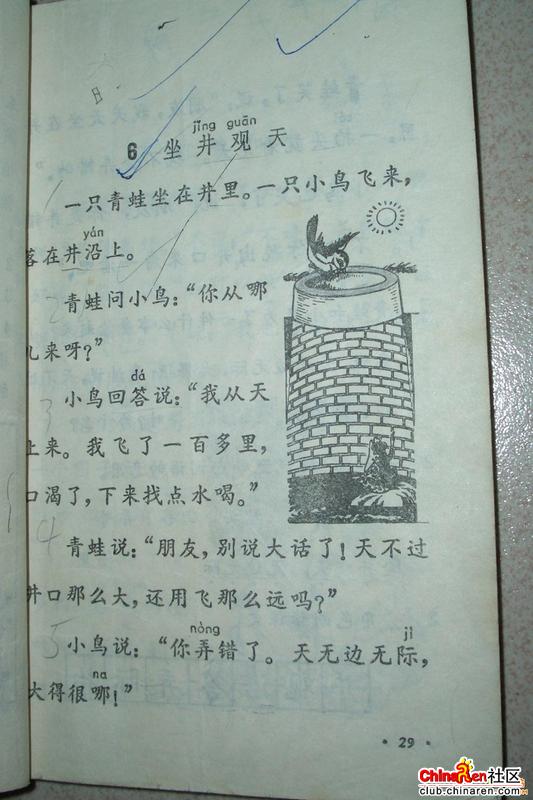 jǐng guān
6 坐井观天
一只青蛙坐在井里。一只小鸟飞来，
yán
落在井沿上。
2 青蛙问小鸟：“你从哪
儿来呀？”
dá
3 小鸟回答说：“我从天
上来。我飞了一百多里，
口渴了，下来找点水喝。”
4 青蛙说：“朋友，别说大话了！天不过
井口那么大，还用飞那么远吗？”
nòng jì
5 小鸟说：“你弄错了。天无边无际，
na
大得很哪！”
·29·
ChinaRen社区
club.chinaren.com